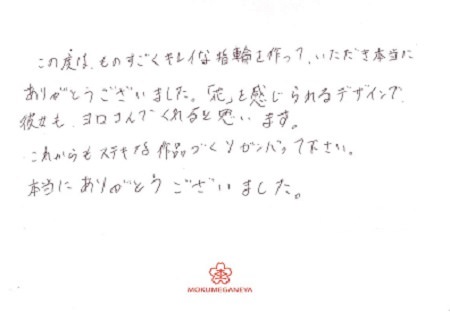 この度は、ものすごくキレイな指輪を作って、いただき本当に
ありがとうございました。「花」を感じられるデザインで
彼女も、ヨロこんでくれると思います。
これからもステキな作品づくりガンバって下さい。
本当にありがとうございました。
MOKUMEGANEYA